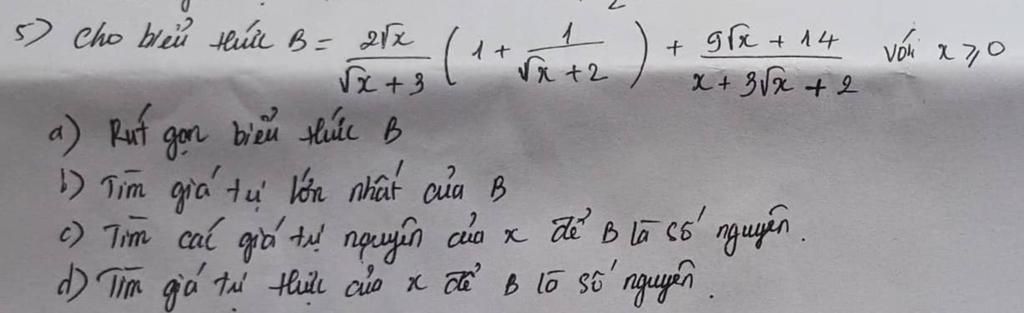 5) Cho biểu thức B = 2√x / (√x + 3) (1 + 1 / (√x + 2)) + (9√x + 14) / (x + 3√x + 2) với x ⩾ 0
a) Rút gọn biểu thức B
b) Tìm giá trị lớn nhất của B
c) Tìm các giá trị nguyên của x để B là số nguyên.
d) Tìm giá trị thực của x để B là số nguyên.